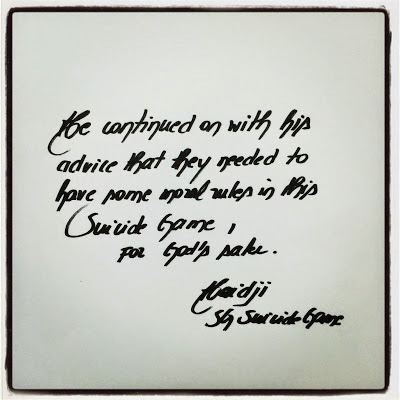 He continued on with his
advice that they needed to
have some moral rules in this
Suicide Game,
FOR God's sake.
Haidji
SG Suicide Game